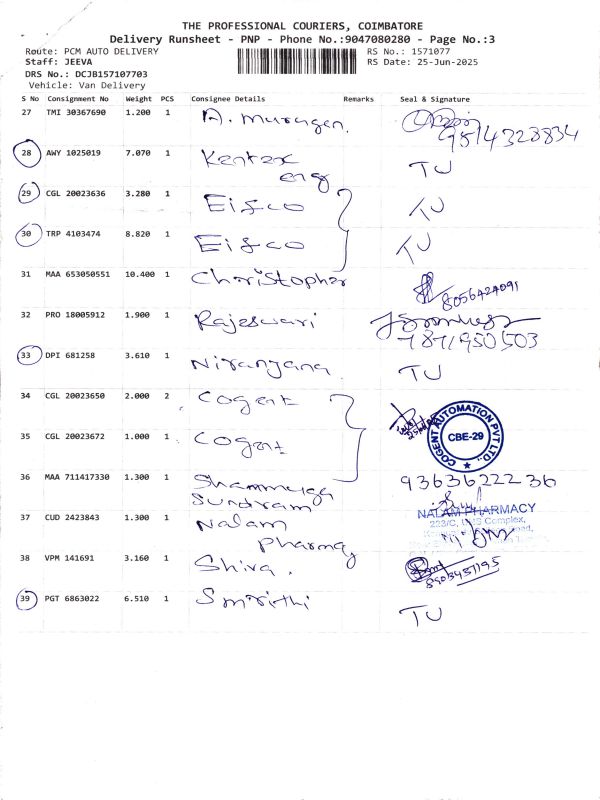 THE PROFESSIONAL COURIERS, COIMBATORE
Delivery Runsheet - PNP - Phone No.:9047080280 - Page No.:3
Route: PCM AUTO DELIVERY
RS No.: 1571077
Staff: JEEVA
RS Date: 25-Jun-2025
DRS No.: DCJB157107703
Vehicle: Van Delivery
S No Consignment No Weight PCS Consignee Details Remarks Seal & Signature
27 TMI 30367690 1.200 1 A. Murugan.
9514323834
28 AWY 1025019 7.070 1 Kentex TU
eng
29 CGL 20023636 3.280 1 Eisco TU
30 TRP 4103474 8.820 1 Eisco TU
31 MAA 653050551 10.400 1 Christopher
8056424091
32 PRO 18005912 1.900 1 Rajeswari
7871950503
33 DPI 681258 3.610 1 Niranjana TU
34 CGL 20023650 2.000 2 Cogent
COGENT AUTOMATION PVT LTD.,
CBE-29
35 CGL 20023672 1.000 1 Cogent
36 MAA 711417330 1.300 1 Shanmuga 9363622236
Sundram
37 CUD 2423843 1.300 1 Nalam NALAM PHARMACY
Pharmacy 223/C, Complex,
38 VPM 141691 3.160 1 Shiva.
39 PGT 6863022 6.510 1 Smrithi TU